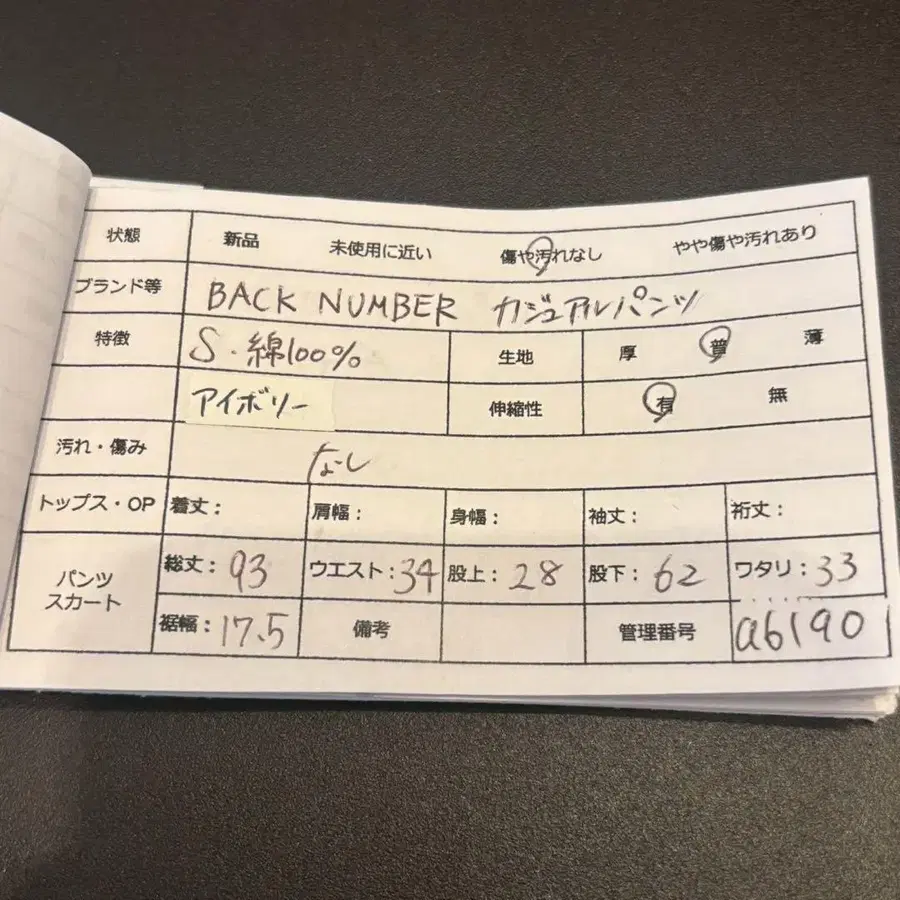 状態 新品 未使用に近い 傷や汚れなし やや傷や汚れあり
ブランド等 BACK NUMBER カジュアルパンツ
特徴 S・綿100% 生地 厚 普 薄
アイボリー 伸縮性 有 無
汚れ・傷み なし
トップス・OP 着丈: 肩幅: 身幅: 袖丈: 裄丈:
パンツ スカート 総丈: 93 ウエスト: 34 股上: 28 股下: 62 ワタリ: 33
裾幅: 17.5 備考 管理番号 a6190